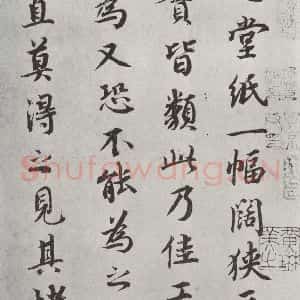 堂纸一幅阔狭
賢皆類此乃佳
為又恐不能為之
直莫得之見其
Shufawang.CN